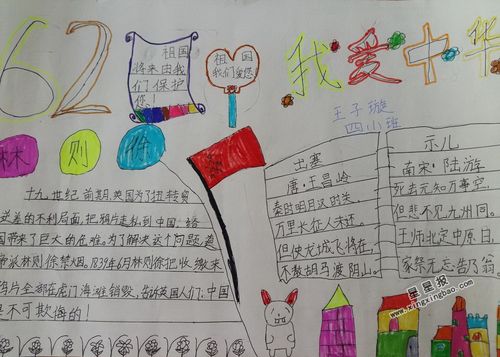 62
我爱中华
祖国
将来由我
们保护
您
祖国
我们爱您
王子璇
四小班
林则徐
十九世纪前期,英国为了扭转贸
逆差的不利局面,把鸦片走私到中国,给
国带来了巨大的危难。为了解决这个问题,道
帝派林则徐禁烟。1839年6月林则徐把收缴来
鸦片全部在虎门海滩销毁,告诉英国人们:中国
是不可欺侮的!
出塞
唐·王昌岭
秦时明月汉时关,
万里长征人未还。
但使龙城飞将在,
不教胡马渡阴山。
示儿
南宋·陆游
死去元知万事空,
但悲不见九州同。
王师北定中原日,
家祭无忘告乃翁
星星报
www.xingxingbao.com